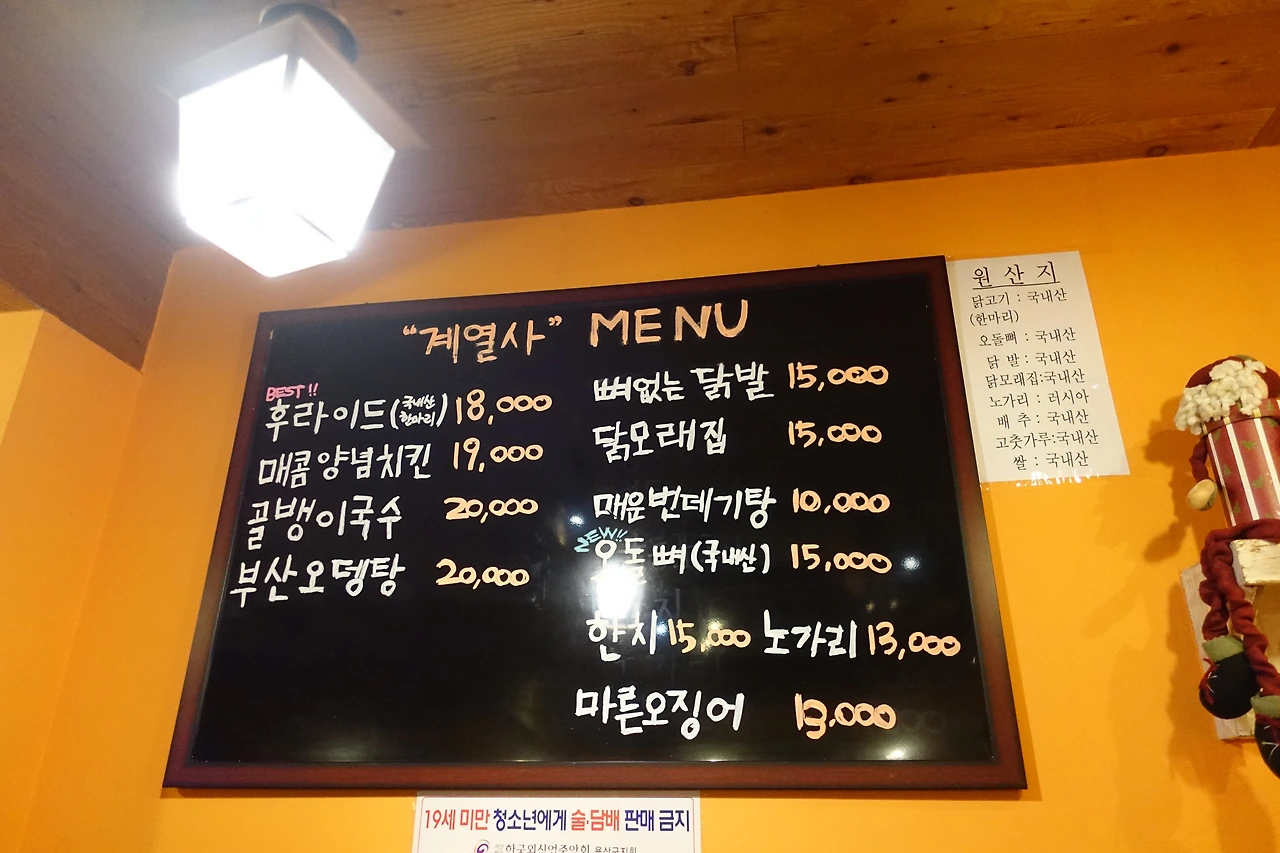 “계열사” MENU
BEST!!
후라이드(국내산 한마리) 18,000
매콤양념치킨 19,000
골뱅이국수 20,000
부산오뎅탕 20,000
뼈없는 닭발 15,000
닭모래집 15,000
매운번데기탕 10,000
NEW!!
오돌뼈(국내산) 15,000
한치 15,000 노가리 13,000
마른오징어 13,000
원 산 지
닭고기 : 국내산
(한마리)
오돌뼈 : 국내산
닭 발 : 국내산
닭모래집:국내산
노가리 : 러시아
배 추 : 국내산
고춧가루:국내산
쌀 : 국내산
19세 미만 청소년에게 술·담배 판매 금지
한국외식업중앙회 용산구지회